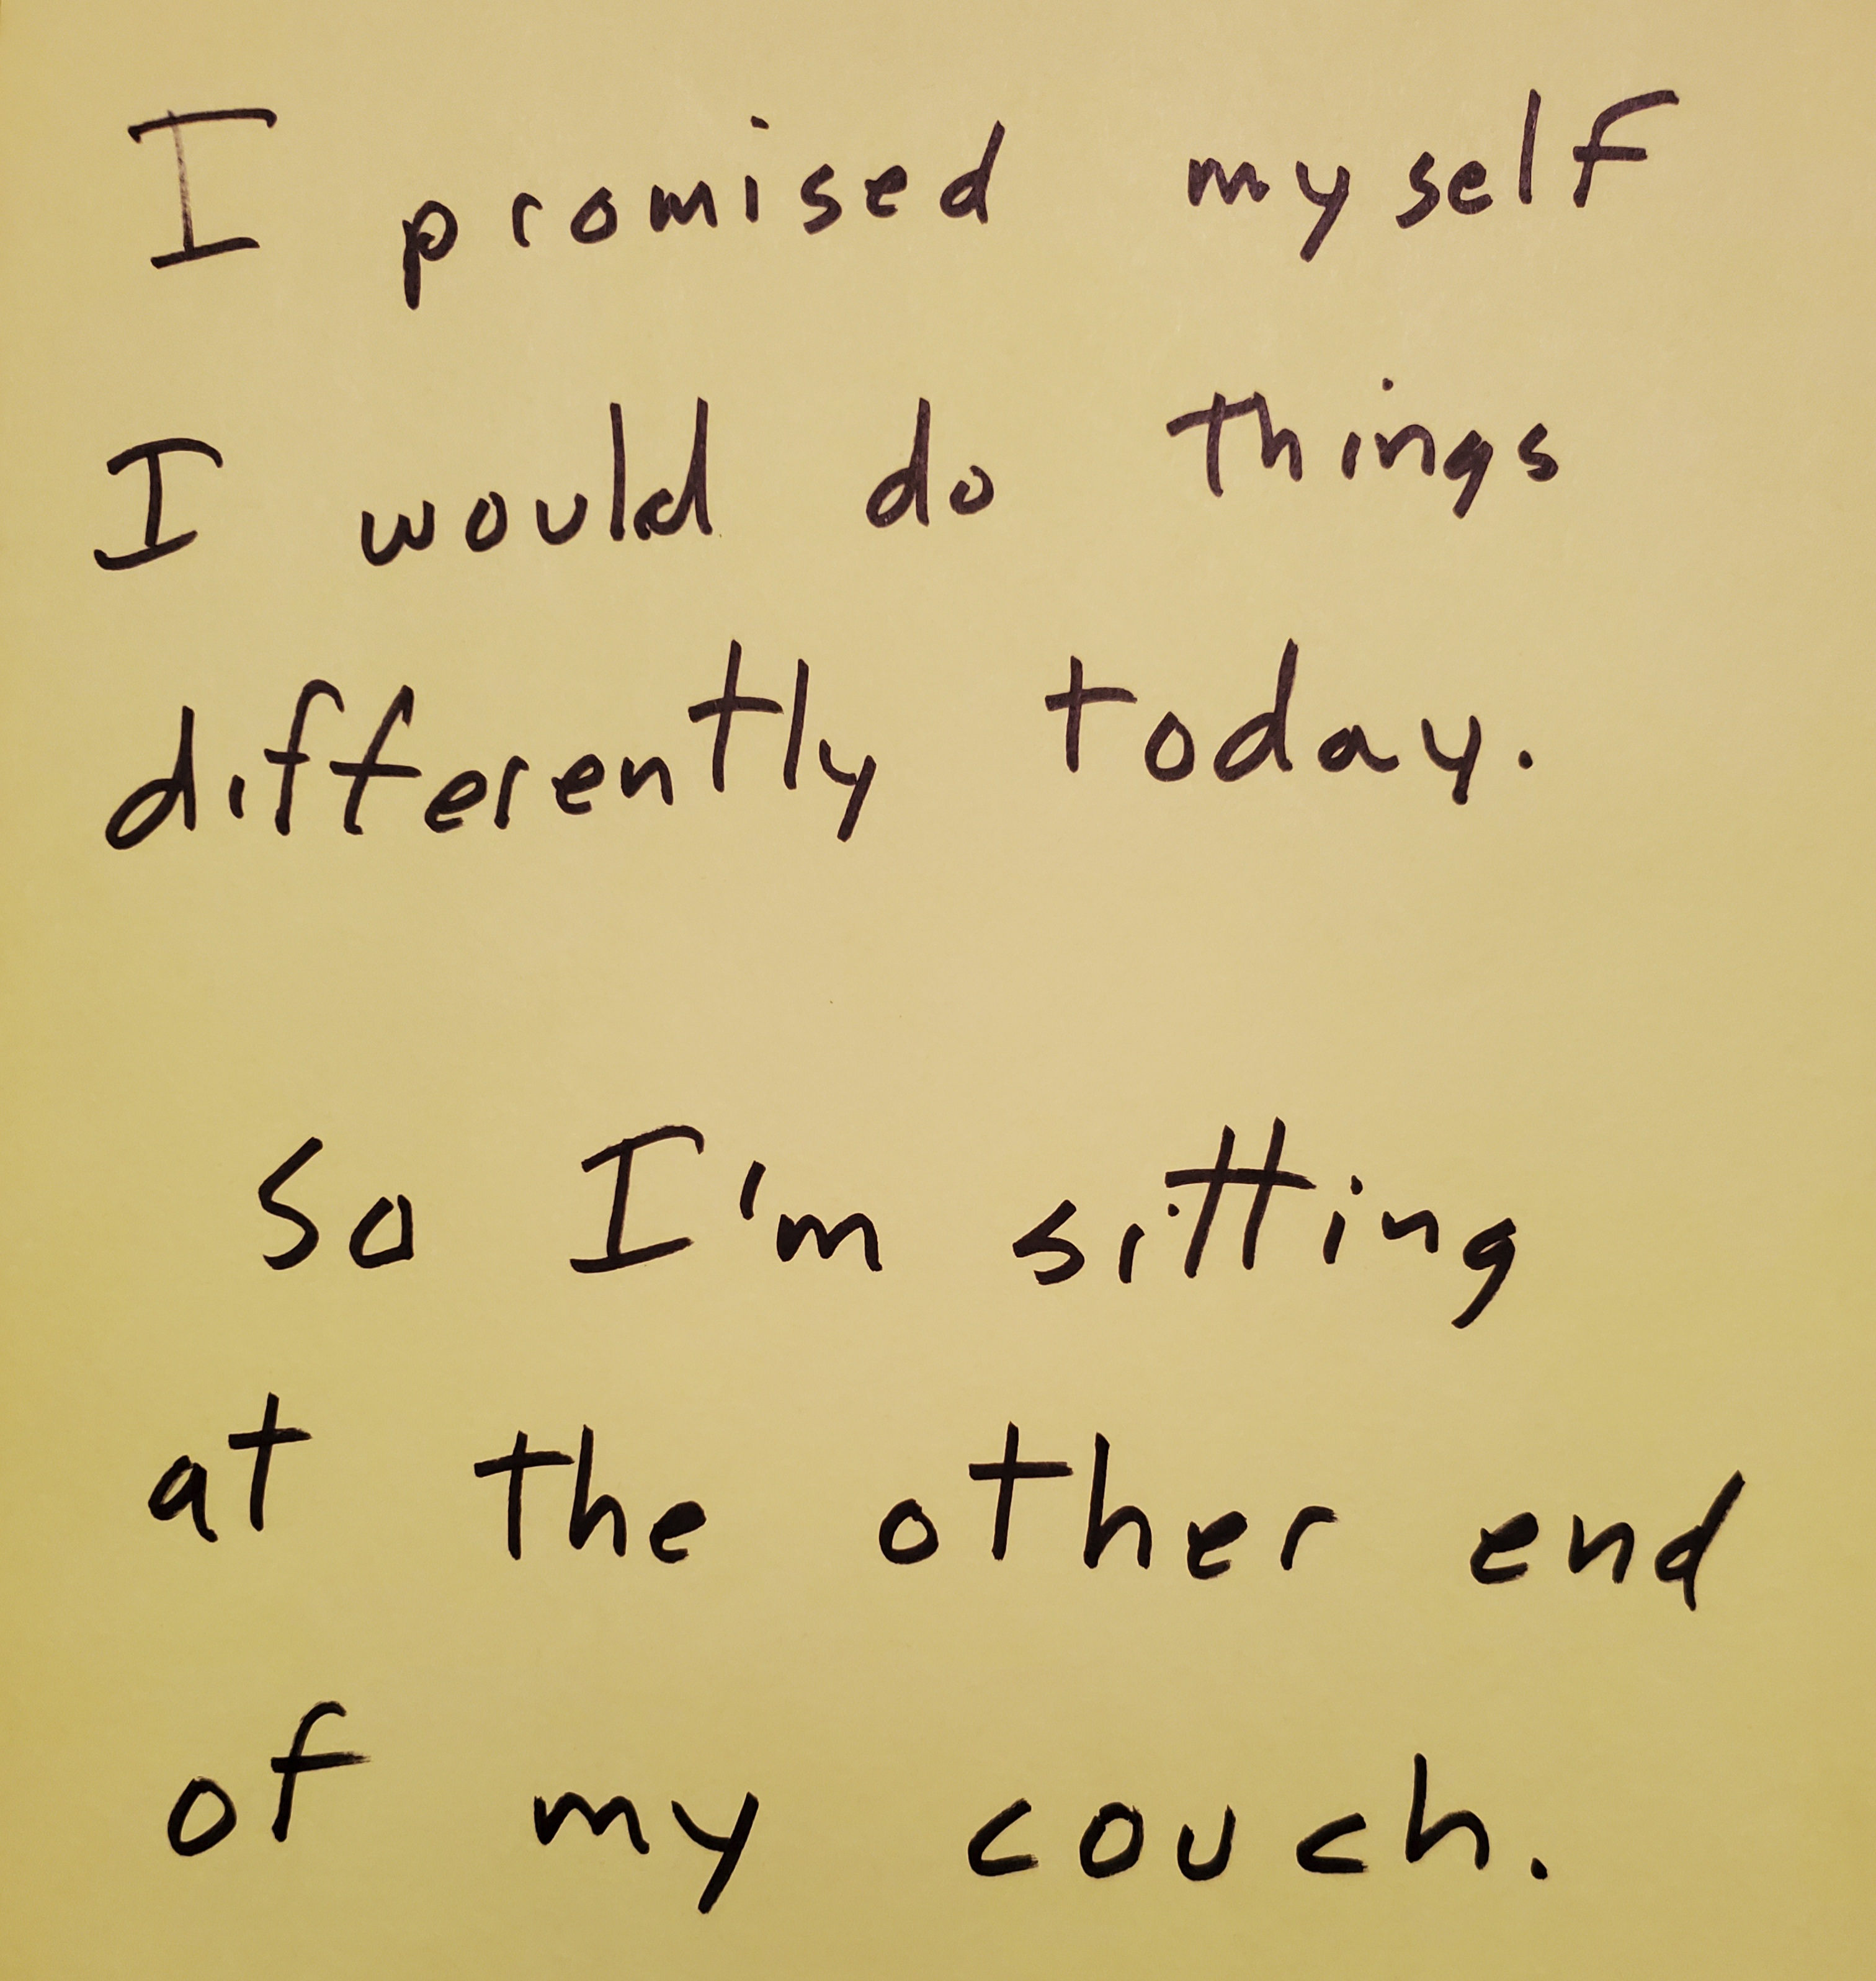 I promised myself
I would do things
differently today.
So I'm sitting
at the other end
of my couch.